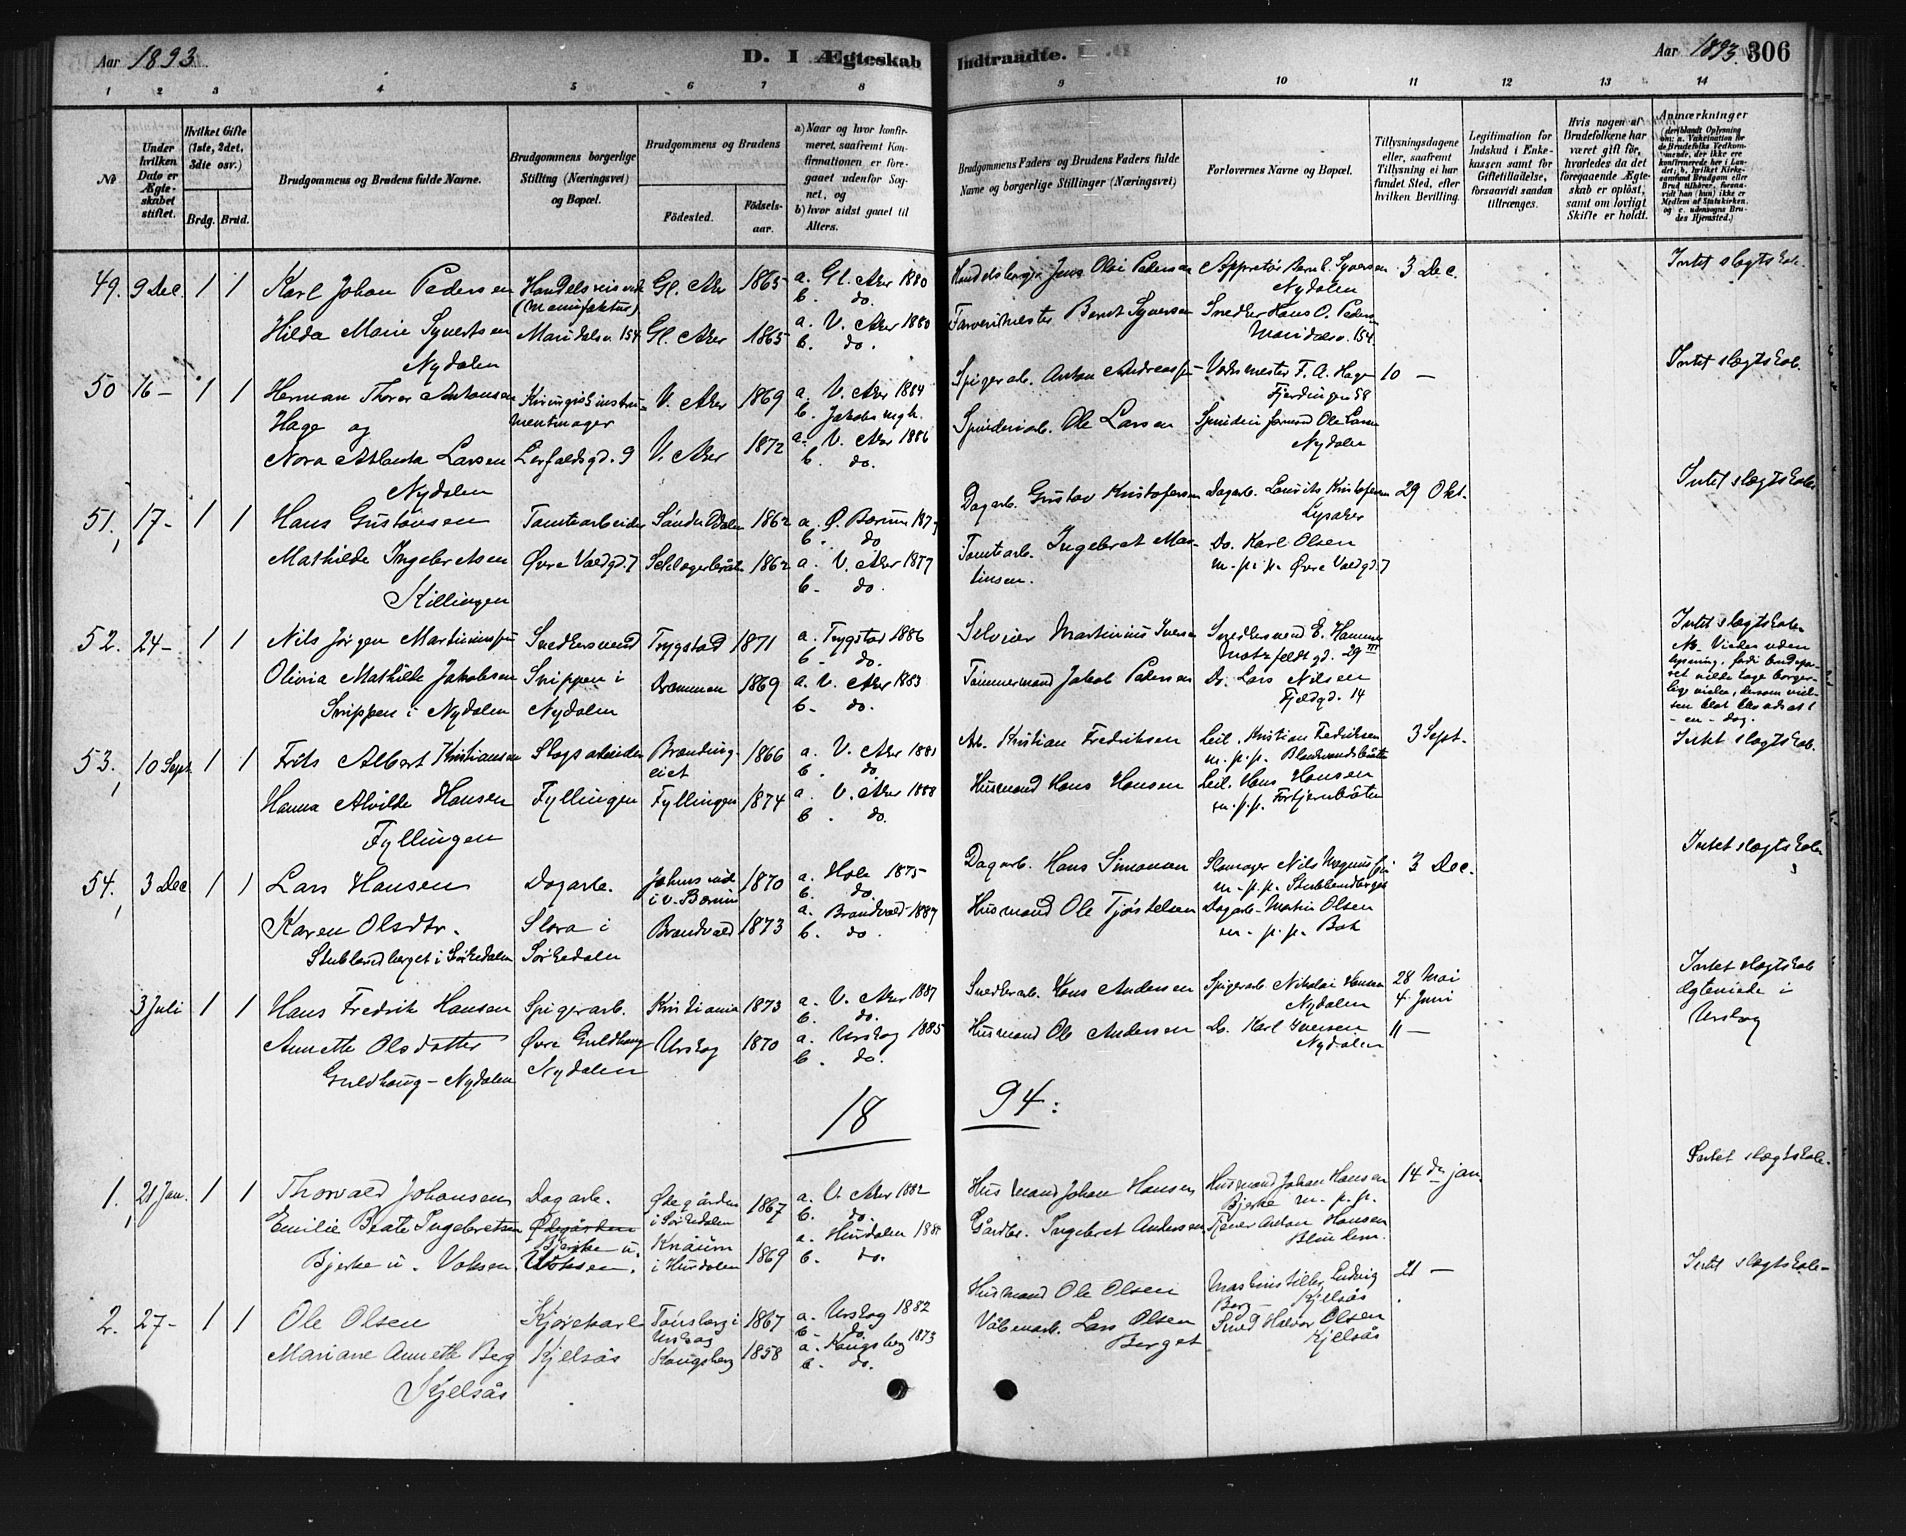 Aar 1893.
D. I Ægteskab
Indtraadte.
Aar 1893. 306
1 2 3 4 5 6 7 8 9 10 11 12 13 14
No
Under hvilken Dato er Ægteskabet stiftet.
Hvilket Gifte (1ste, 2det, 3die osv.)
Brdg. Brud.
Brudgommens og Brudens fulde Navne.
Brudgommens borgerlige Stilling (Næringsvei) og Bopæl.
Brudgommens og Brudens
Fødested.
Fødselsaar.
a) Naar og hvor konfirmeret, saafremt Konfirmationen er foregaaet udenfor Sognet, og
b) hvor sidst gaaet til Alters.
Brudgommens Faders og Brudens Faders fulde Navne og borgerlige Stillinger (Næringsvei)
Forlovernes Navne og Bopæl.
Tillysningsdagene eller, saafremt Tillysning ei har fundet Sted, efter hvilken Bevilling.
Legitimation for Indskud i Enkekassen samt for Giftetilladelse, forsaavidt saadan tiltrænges.
Hvis nogen af Brudefolkene har været gift før, hvorledes da det foregaaende Ægteskab er opløst, samt om lovligt Skifte er holdt.
Anmærkninger
49. 9 Dec. 1 1 Karl Johan Pedersen
Handelsreisende (Manufaktur) Gl. Aker 1865 a. Gl. Aker 1880
b. do.
Jens Olai Pedersen
Nydalen
3 Dec.
Intet slægtskab.
Hilda Marie Syvertsen
Maridalsv. 154 Gl. Aker 1865 a. V. Aker 1880
b. do.
Farverimester Berndt Syversen
Snedker Hans O. Pedersen
Maridalsv. 154
Nydalen
50 16 - 1 1 Herman Thorer Antonsen
Hage og
Kirurgisk instrumentmager V. Aker 1869 a. V. Aker 1884
b. Jakobs mgh.
Spigerarb. Anton Andreassen
F. A. Hage
Fjerdingen 58
10 -
Intet slægtskab.
Nora Atlanta Larsen
V. Aker 1872 a. V. Aker 1886
b. do.
Spinderiarb. Ole Larsen
Ole Larsen
Nydalen
Nydalen
51, 17 - 1 1 Hans Gustavsen
Tomtearbeider 1862 a. Ø. Bærum
b. do
Dagarb. Gustav Kristofersen
Dagarb. Laurits Kristofersen
Lysaker
29 Okt.
Intet slægtskab
Mathilde Ingebretsen
Øvre Voldgd. 7 1862 a. V. Aker 1877
b. do.
Tomtearb. Ingebret Martinsen.
Do. Karl Olsen
m. p. p. Øvre Voldgd. 7
Killingen
52. 24 - 1 1 Nils Jørgen Martiniussen
Snedkersvend Trygstad 1871 a. Trygstad 1886
b. do.
Selveier Martinius Iversen
Snedkersvend E. Hammer
Motzfeldtgd. 29 III
Intet slægtskab
Olivia Mathilde Jakobsen
Snippen i Nydalen Drammen 1869 a. V. Aker 1883
b. do.
Tømmermand Jakob Pedersen
Do. Lars Nilsen
Fjeldgd. 14
Snippen i Nydalen
53, 10 Sept. 1 1 Frits Albert Kristiansen
Skogsarbeider 1866 a. V. Aker 1881
b. do
Arb. Kristian Fredriksen
Leil. Kristian Fredriksen
m. p. p.
3 Sept.
Intet slægtskab.
Hanna Alvilde Hansen
Fyllingen Fyllingen 1874 a. V. Aker 1888
b. do.
Husmand Hans Hansen
Leil. Hans Hansen
m. p. p.
Fyllingen
54, 3 Dec. 1 1 Lars Hansen
Dagarb. i V. Bærum 1870 a. Hole 1875
b. do.
Dagarb. Hans Simonsen
m. p. p.
3 Dec.
Intet slægtskab
Karen Olsdtr.
Slora i Sørkedalen Brandvold 1873 a. Brandvold 1887
b. do.
Husmand Ole Tjøstelsen
Dagarb. Martin Olsen
m. p. p. Bak
i Sørkedalen
3 Juli 1 1 Hans Fredrik Hansen
Spigerarb. Kristiania 1873 a. V. Aker 1887
b. do.
Snedkerarb. Hans Andersen
Spigerarb. Nikolai Hansen
Nydalen
28 Mai
4 Juni
Intet slægtskab
Ægteviede i
Urskog
Annette Olsdatter
Øvre Guldhaug
Nydalen Urskog 1870 a. Urskog 1885
b. do.
Husmand Ole Andersen
Do. Karl Iversen
Nydalen
11 -
Guldhaug - Nydalen
18 94:
1, 21 Jan. 1 1 Thorvald Johansen
Dagarb. Ødegården
i Sørkedalen 1867 a. V. Aker 1882
b. do.
Husmand Johan Hansen
Husmand Johan Hansen
Bjerke m. p. p.
14 de jan.
Intet slægtskab.
Emilie Beate Ingebretsen
Bjerke u. Voksen.
i Hurdalen 1869 a. Hurdalen
b. do.
Gårdbr. Ingebret Andersen
Tjener Anton Hansen
Bjerke u. Voksen
2. 27 - 1 1 Ole Olsen
Kjørekarl Urskog 1867 a. Urskog 1882
b. do.
Husmand Ole Olsen
Ludvig
Berg - Kjelsås
21 -
Intet slægtskab -
Mariane Annette Berg
Kjelsås Kongsberg 1858 a. Kongsberg 1873
b. do.
Våbenarb. Lars Olsen
Berget
Smed Halvor Olsen
Kjelsås
Kjelsås